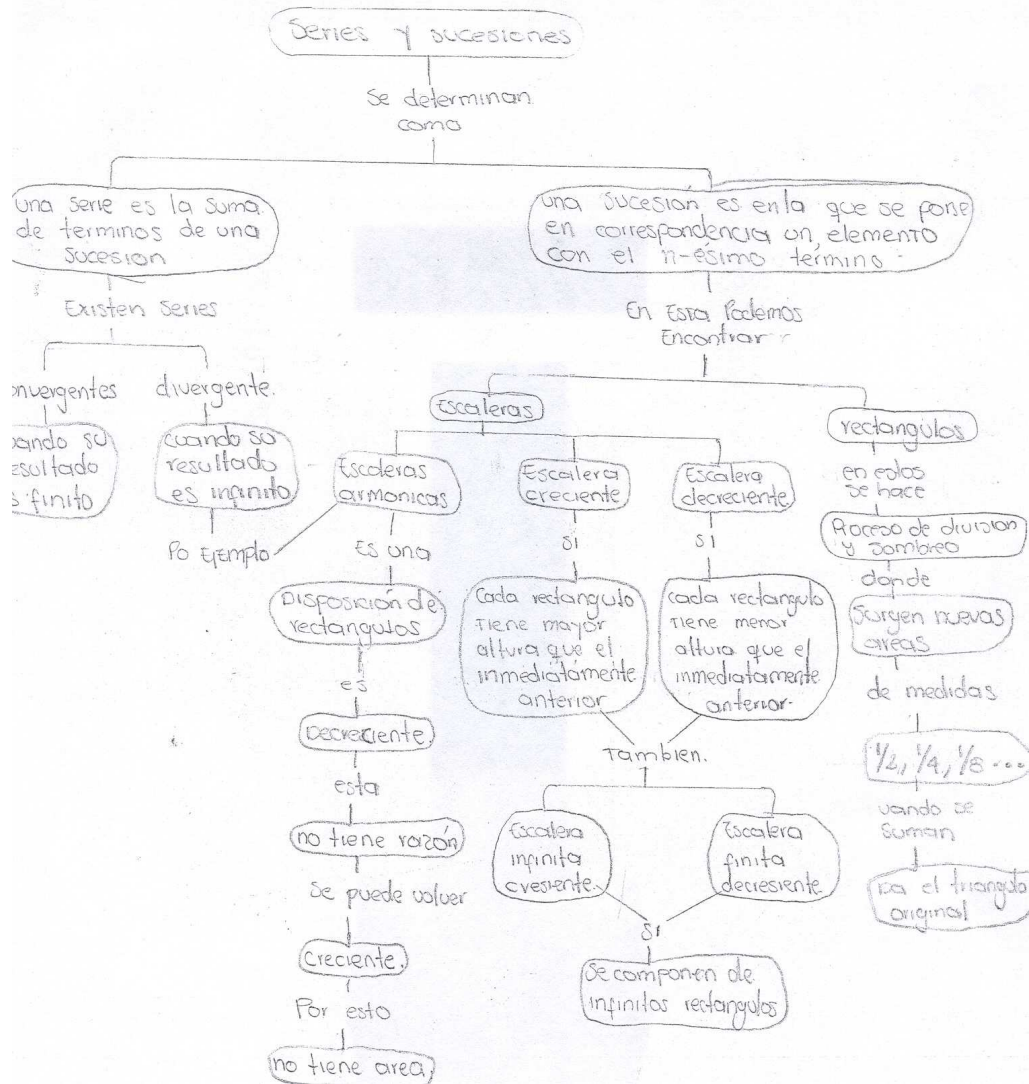 Series y sucesiones
Se determinan
como
una serie es la suma
de terminos de una
sucesion
Existen Series
onvergentes
uando su
esultado
s finito
divergente.
cuando su
resultado
es infinito
Po Ejemplo
una sucesión es en la que se pone
en correspondencia un elemento
con el n-ésimo termino
En Esta Podemos
Encontrar
Escaleras
Escaleras
armonicas
Es una
Disposición de
rectangulos
es
Decreciente.
esta
no tiene razón
Se puede volver
Creciente.
Por esto
no tiene area,
Escalera
creciente
si
Cada rectangulo
Tiene mayor
altura que el
inmediatamente
anterior
Escalera
decreciente
si
cada rectangulo
Tiene menor
altura que el
inmediatamente
anterior.
Tambien.
Escalera
infinita
cresiente.
Escalera
finita
decresiente
Si
Se componen de
infinitos rectangulos
rectangulos
en estos
se hace
Proceso de division
y sombreo
donde
Surgen nuevas
areas
de medidas
1/2, 1/4, 1/8 ...
uando se
Suman
Da el triangulo
original